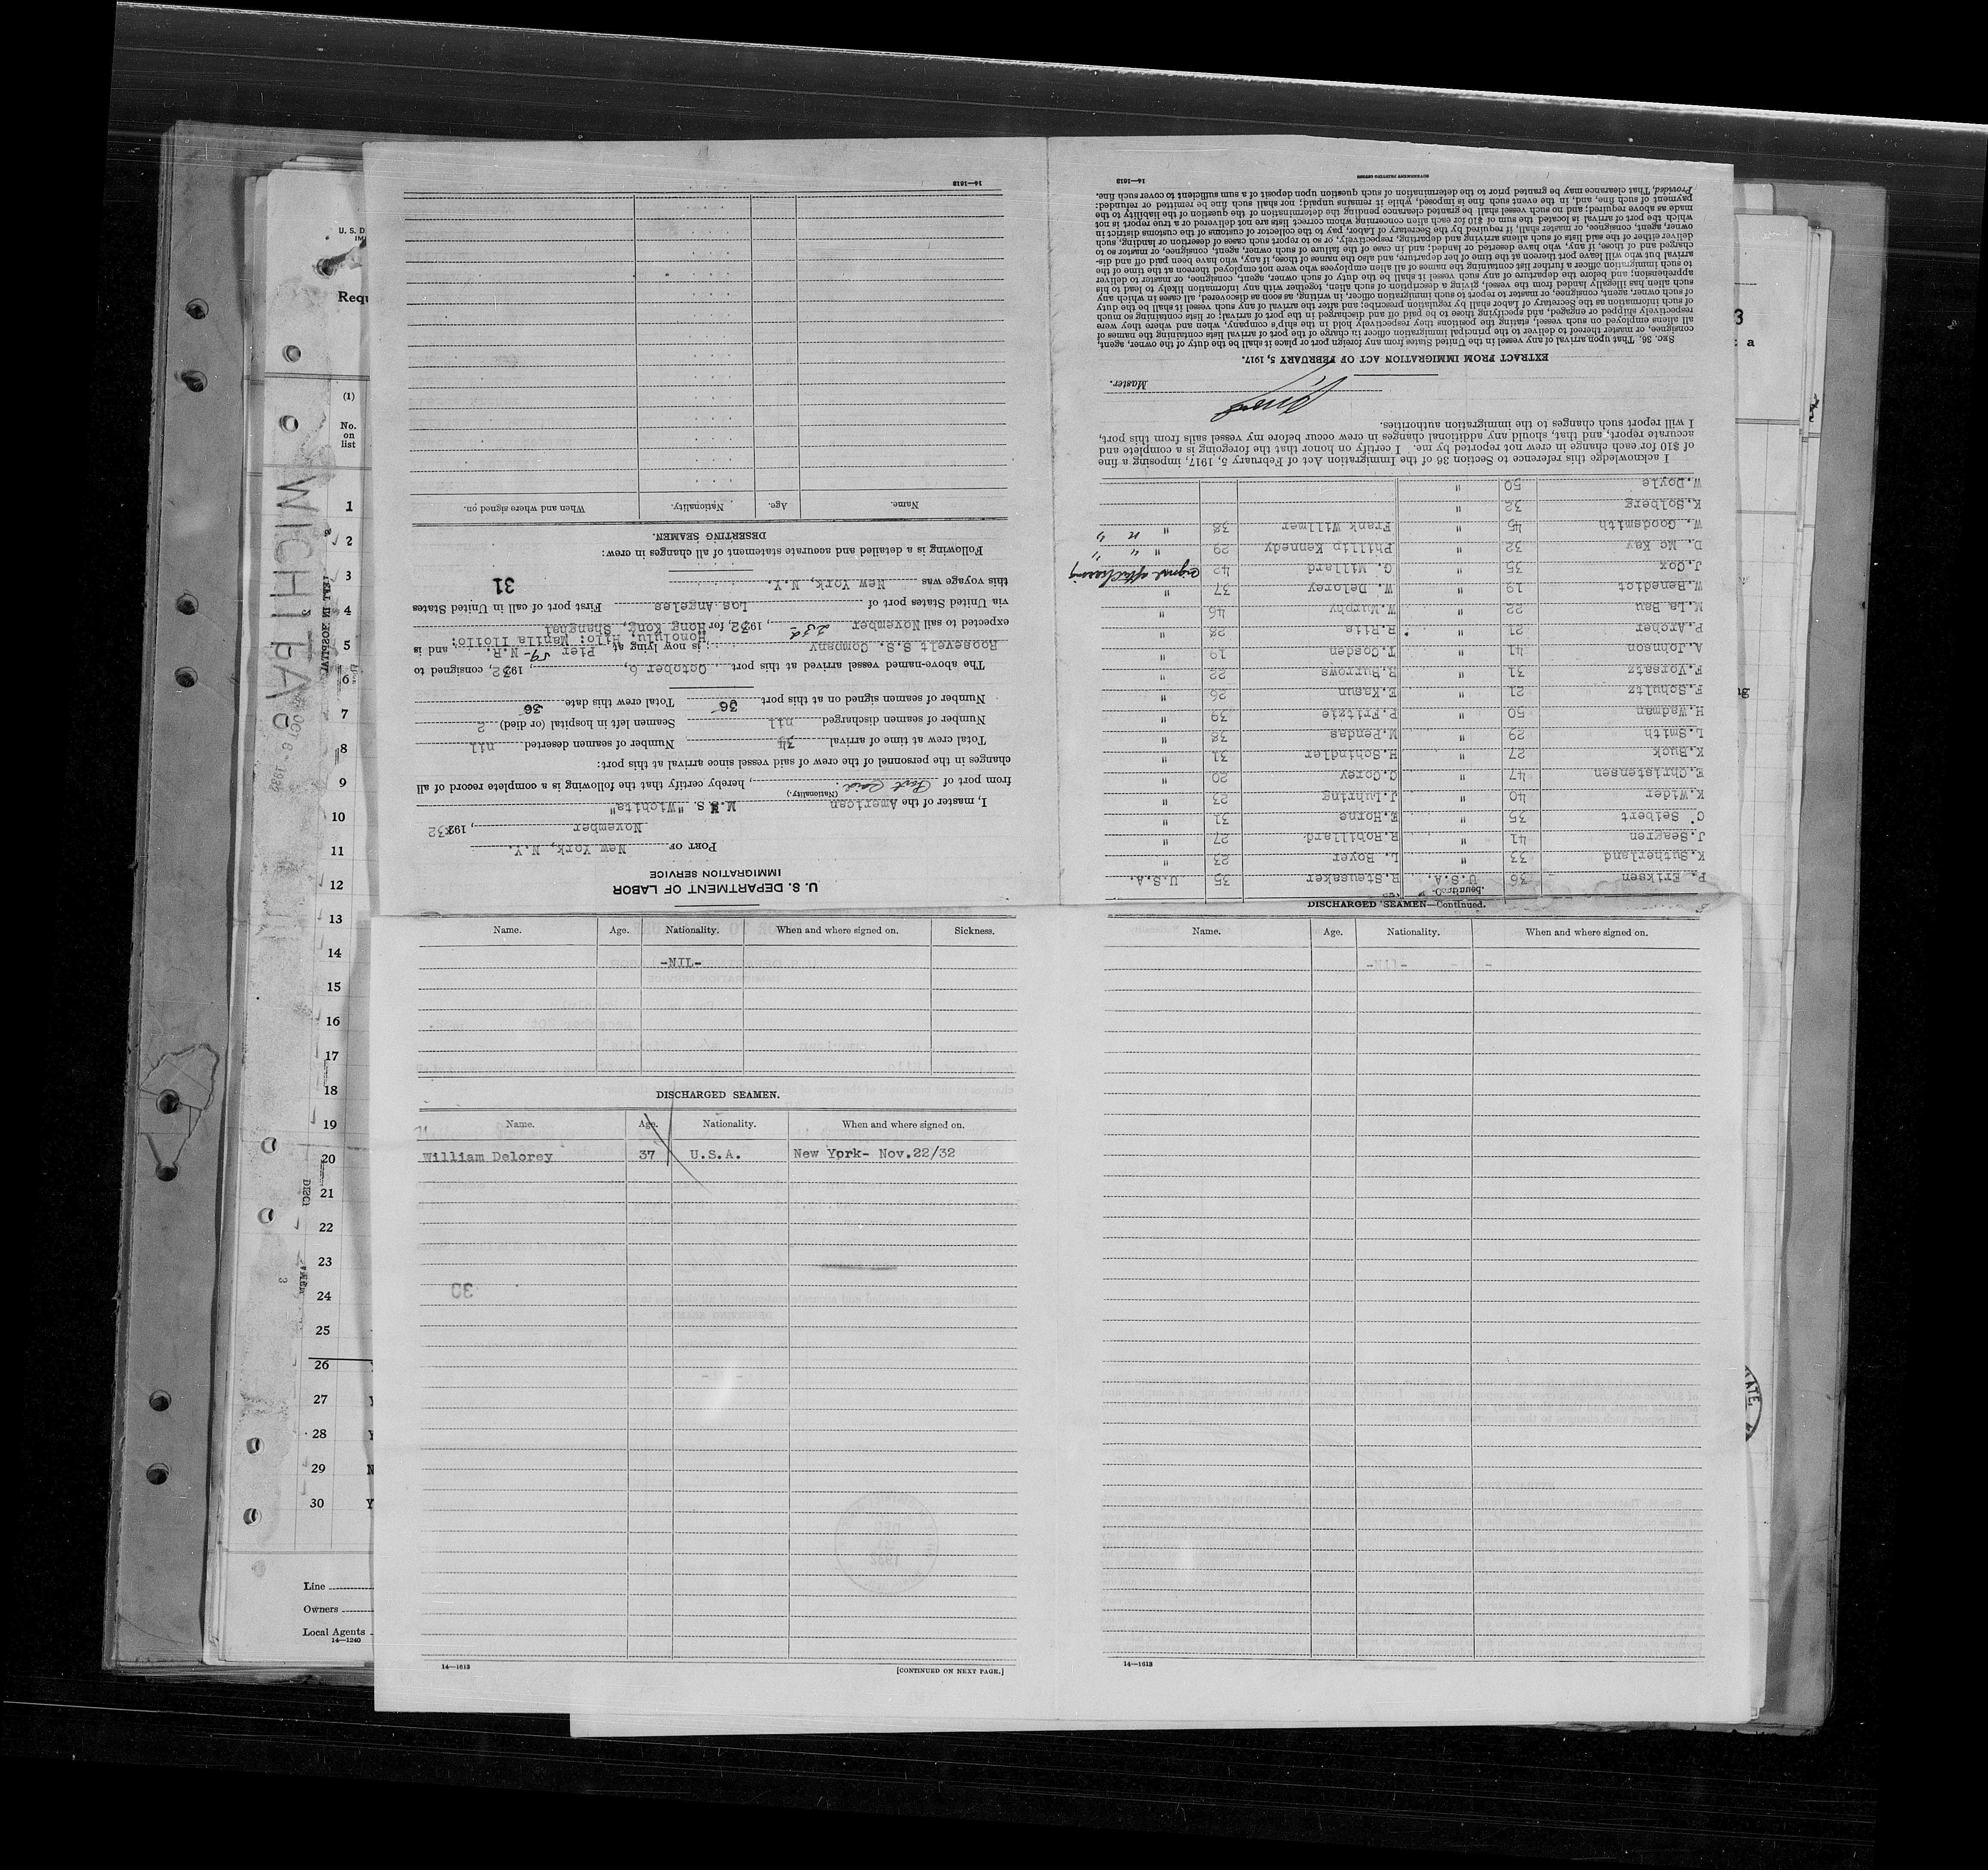 U. S. DEPARTMENT OF LABOR
IMMIGRATION SERVICE
PORT OF New York, N.Y.
November, 19232
I, master of the American M.S. "Wichita"
(Nationality.)
from port of Port Said, hereby certify that the following is a complete record of all
changes in the personnel of the crew of said vessel since arrival at this port:
Total crew at time of arrival 34 Number of seamen deserted nil
Number of seamen discharged nil Seamen left in hospital (or died) 2
Number of seamen signed on at this port 36 Total crew this date 36
The above-named vessel arrived at this port October 6, 1932, consigned to
Roosevelt S.S. Company; is now lying at Pier 59- N.R. and is
Honolulu, Hilo: Manila Iloilo;
expected to sail November 23d, 1932, for Hong Kong, Shanghai
via United States port of Los Angeles First port of call in United States
this voyage was New York, N.Y.
31
Following is a detailed and accurate statement of all changes in crew:
DESERTING SEAMEN.
Name. Age. Nationality. When and where signed on.
14-1613
P. Eriksen 36 U.S.A. R.Steusaker 35 U.S.A.
K.Sutherland 33 " L. Boyer 23 "
J.Seagren 41 " R.Robillard 27 "
C. Seibert 35 " E.Horne 31 "
K.Wider 40 " J.Luhring 23 "
E.Christensen 47 " C.Corey 20 "
K.Buck 27 " H.Schindler 31 "
L.Smith 29 " M.Pendas 38 "
H.Wedman 50 " P.Fritzie 39 "
F.Schultz 21 " E.Kagun 26 "
F.Vorsatz 31 " R.Burrows 22 "
A.Johnson 41 " T.Cosden 19 "
P.Archer 21 " R.Rita 28 "
M.La Bau 22 " W.Murphy 46 "
W.Benedtot 19 " W. Delorey 37 "
J.Cox 35 " G. Millard 42 signed after clearing
D. Mc Kay 32 " Phillip Kennedy 29 " " "
W. Goodsmith 45 " Frank Willmer 38 " " "
K.Solberg 32 "
W.Doyle 50 "
I acknowledge this reference to Section 36 of the Immigration Act of February 5, 1917, imposing a fine
of $10 for each change in crew not reported by me. I certify on honor that the foregoing is a complete and
accurate report, and that, should any additional changes in crew occur before my vessel sails from this port,
I will report such changes to the immigration authorities.
Master.
EXTRACT FROM IMMIGRATION ACT OF FEBRUARY 5, 1917.
SEC. 36. That upon arrival of any vessel in the United States from any foreign port or place it shall be the duty of the owner, agent,
consignee, or master thereof to deliver to the principal immigration officer in charge of the port of arrival lists containing the names of
all aliens employed on such vessel, stating the positions they respectively hold in the ship's company, when and where they were
respectively shipped or engaged, and specifying those to be paid off and discharged in the port of arrival; or lists containing so much
of such information as the Secretary of Labor shall by regulation prescribe; and after the arrival of any such vessel it shall be the duty
of such owner, agent, consignee, or master to report to such immigration officer, in writing, as soon as discovered, all cases in which any
such alien has illegally landed from the vessel, giving a description of such alien, together with any information likely to lead to his
apprehension; and before the departure of any such vessel it shall be the duty of such owner, agent, consignee, or master to deliver
to such immigration officer a further list containing the names of all alien employees who were not employed thereon at the time of the
arrival but who will leave port thereon at the time of her departure, and also the names of those, if any, who have been paid off and dis-
charged and of those, if any, who have deserted or landed; and in case of the failure of such owner, agent, consignee, or master so to
deliver either of the said lists of such aliens arriving and departing, respectively, or so to report such cases of desertion or landing, such
owner, agent, consignee, or master shall, if required by the Secretary of Labor, pay to the collector of customs of the customs district in
which the port of arrival is located the sum of $10 for each alien concerning whom correct lists are not delivered or a true report is not
made as above required; and no such vessel shall be granted clearance pending the determination of the question of the liability to the
payment of such fine, and, in the event such fine is imposed, while it remains unpaid; nor shall such fine be remitted or refunded:
Provided, That clearance may be granted prior to the determination of such question upon deposit of a sum sufficient to cover such fine.
GOVERNMENT PRINTING OFFICE 14-1613
Name. Age. Nationality. When and where signed on. Sickness.
-NIL-
DISCHARGED SEAMEN.
Name. Age. Nationality. When and where signed on.
William Delorey 37 U.S.A. New York- Nov.22/32
14-1613 [CONTINUED ON NEXT PAGE.]
DISCHARGED SEAMEN—Continued.
Name. Age. Nationality. When and where signed on.
14-1613
U. S. D
IM
Requ
(1)
No.
on
list
WICHITA
OCT 6 - 1932
1
2
3
4
5
6
7
8
9
10
11
12
13
14
15
16
17
18
19
20
21
22
23
24
25
26
27
28
29
30
Line
Owners
Local Agents
14-1240